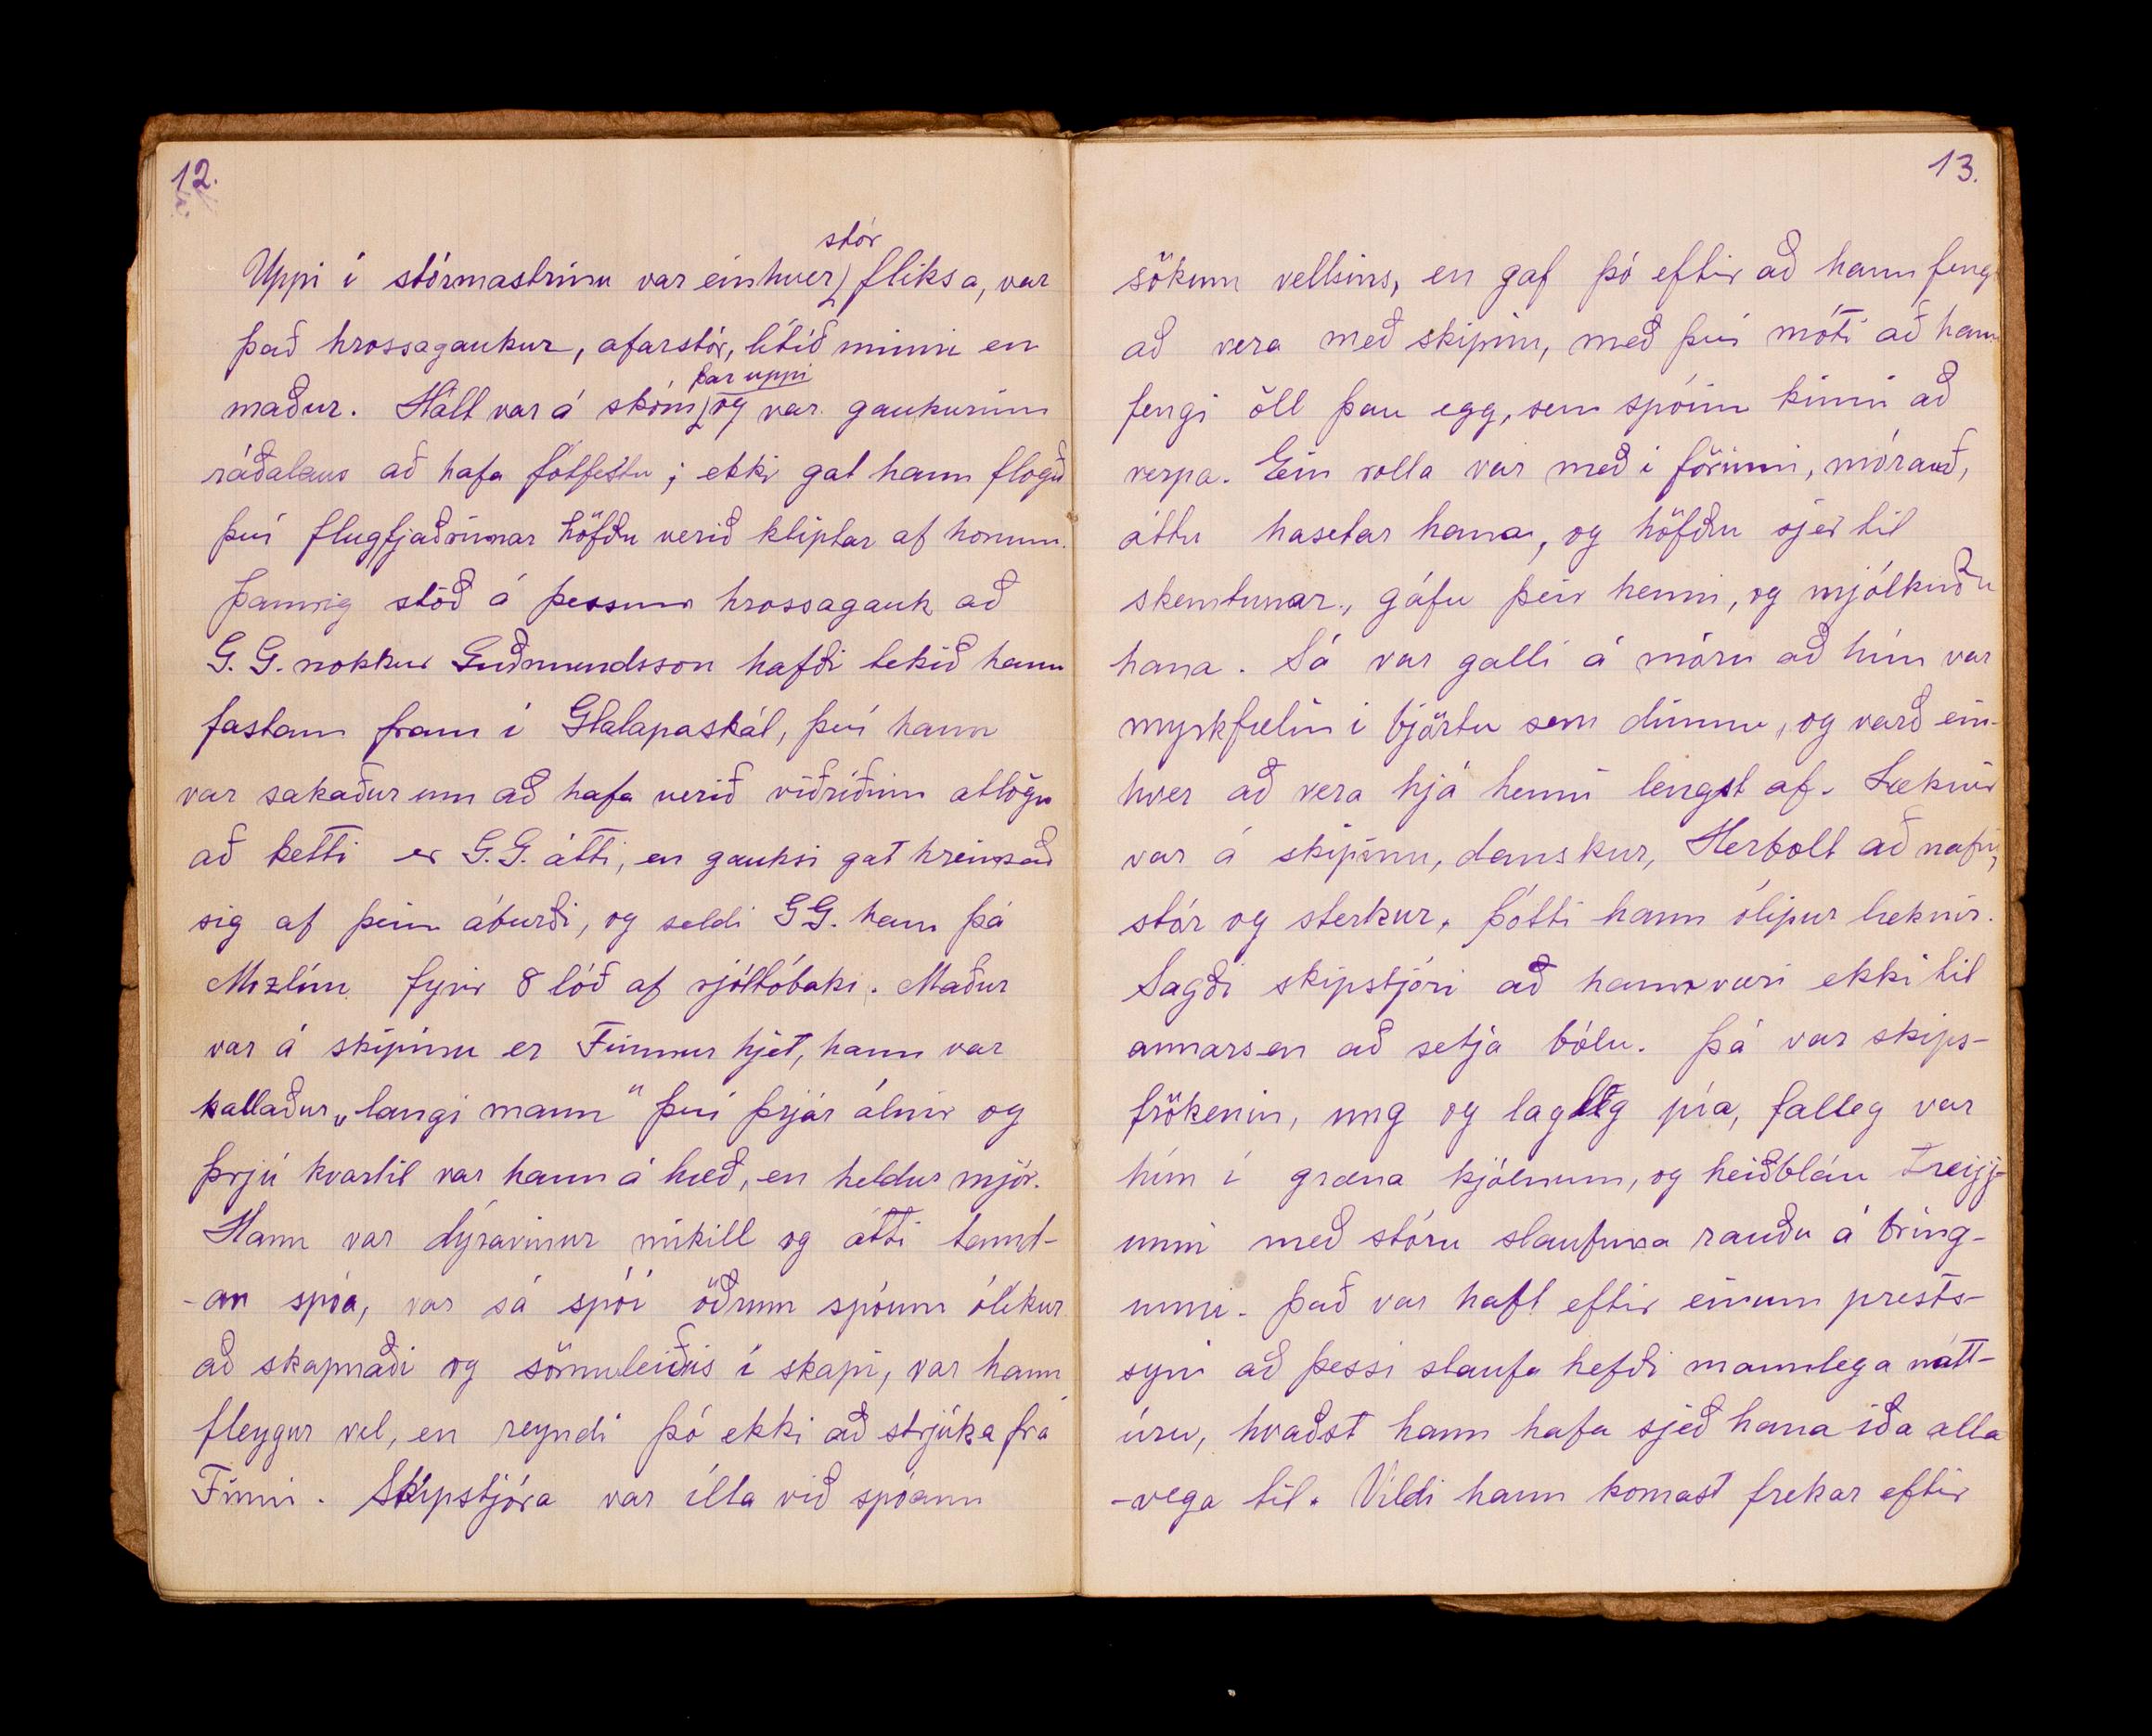 12.
Uppi í stórmastrinu var einhver stór fliksa, var
það hrossagaukur, afarstór, lítið minni en
maður. Hált var á skóm, þar uppi og var gaukurinn
ráðalaus að hafa fótfestu; ekki gat hann flogið
því flugfjaðrirnar höfðu verið kliptar af honum.
Þannig stóð á þessum hrossagauk að
G. G. nokkur Guðmundsson hafði tekið hann
fastann fram í Glalapaskál, því hann
var sakaður um að hafa verið viðriðinn atlögu
að ketti er G.G. átti, en gauksi gat hreinsað
sig af þeim áburði, og seldi GG. hann þá
Mozlím fyrir 8 lóð af rjóltóbaki. Maður
var á skipinu er Finnur hjet, hann var
kallaður „langi mann" því þrjár álnir og
þrjú kvartil var hann á hæð, en heldur mjór.
Hann var dýravinur mikill og átti tamd-
-an spóa, var sá spói öðrum spóum ólíkur
að skapnaði og sömuleiðis í skapi, var hann
fleygur vel, en reyndi þó ekki að strjúka frá
Finni. Skipstjóra var illa við spóann
13.
sökum vellsins, en gaf þó eftir að hann feng
að vera með skipinu, með því móti að hann
fengi öll þau egg, sem spóinn kinni að
verpa. Ein rolla var með í förinni, mórauð,
áttu hasetar hana, og höfðu sjer til
skemtunar, gáfu þeir henni, og mjólkuðu
hana. Sá var galli á móru að hún var
myrkfælin í björtu sem dimmu, og varð ein-
hver að vera hjá henni lengst af. Læknir
var á skipinu, danskur, Herbolt að nafni,
stór og sterkur. Þótti hann ólipur læknir.
Sagði skipstjóri að hann væri ekki til
annars en að setja bólu. Þá var skips-
frökenin, ung og lagleg pía, falleg var
hún í græna kjólnum, og heiðbláu treijj-
unni með stóru slaufuna rauðu á bring-
unni. Það var haft eftir einum prests-
syni að þessi slaufa hefði mannlega nátt-
úru, kvaðst hann hafa sjeð hana iða alla
-vega til. Vildi hann komast frekar eftir